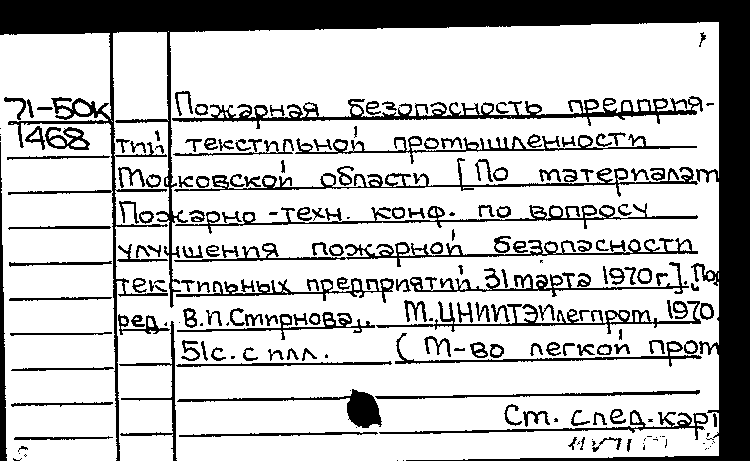 71-50к
1468
Пожарная безопасность предприя-
тий текстильной промышленности
Московской области [По материалам
Пожарно-техн. конф. по вопросу
улучшения пожарной безопасности
текстильных предприятий. 31 марта 1970 г.]. Под
ред. В.П.Смирнова,. М.,ЦНИИТЭИлегпром, 1970.
51с. с илл. (М-во легкой пром
См. след. карт